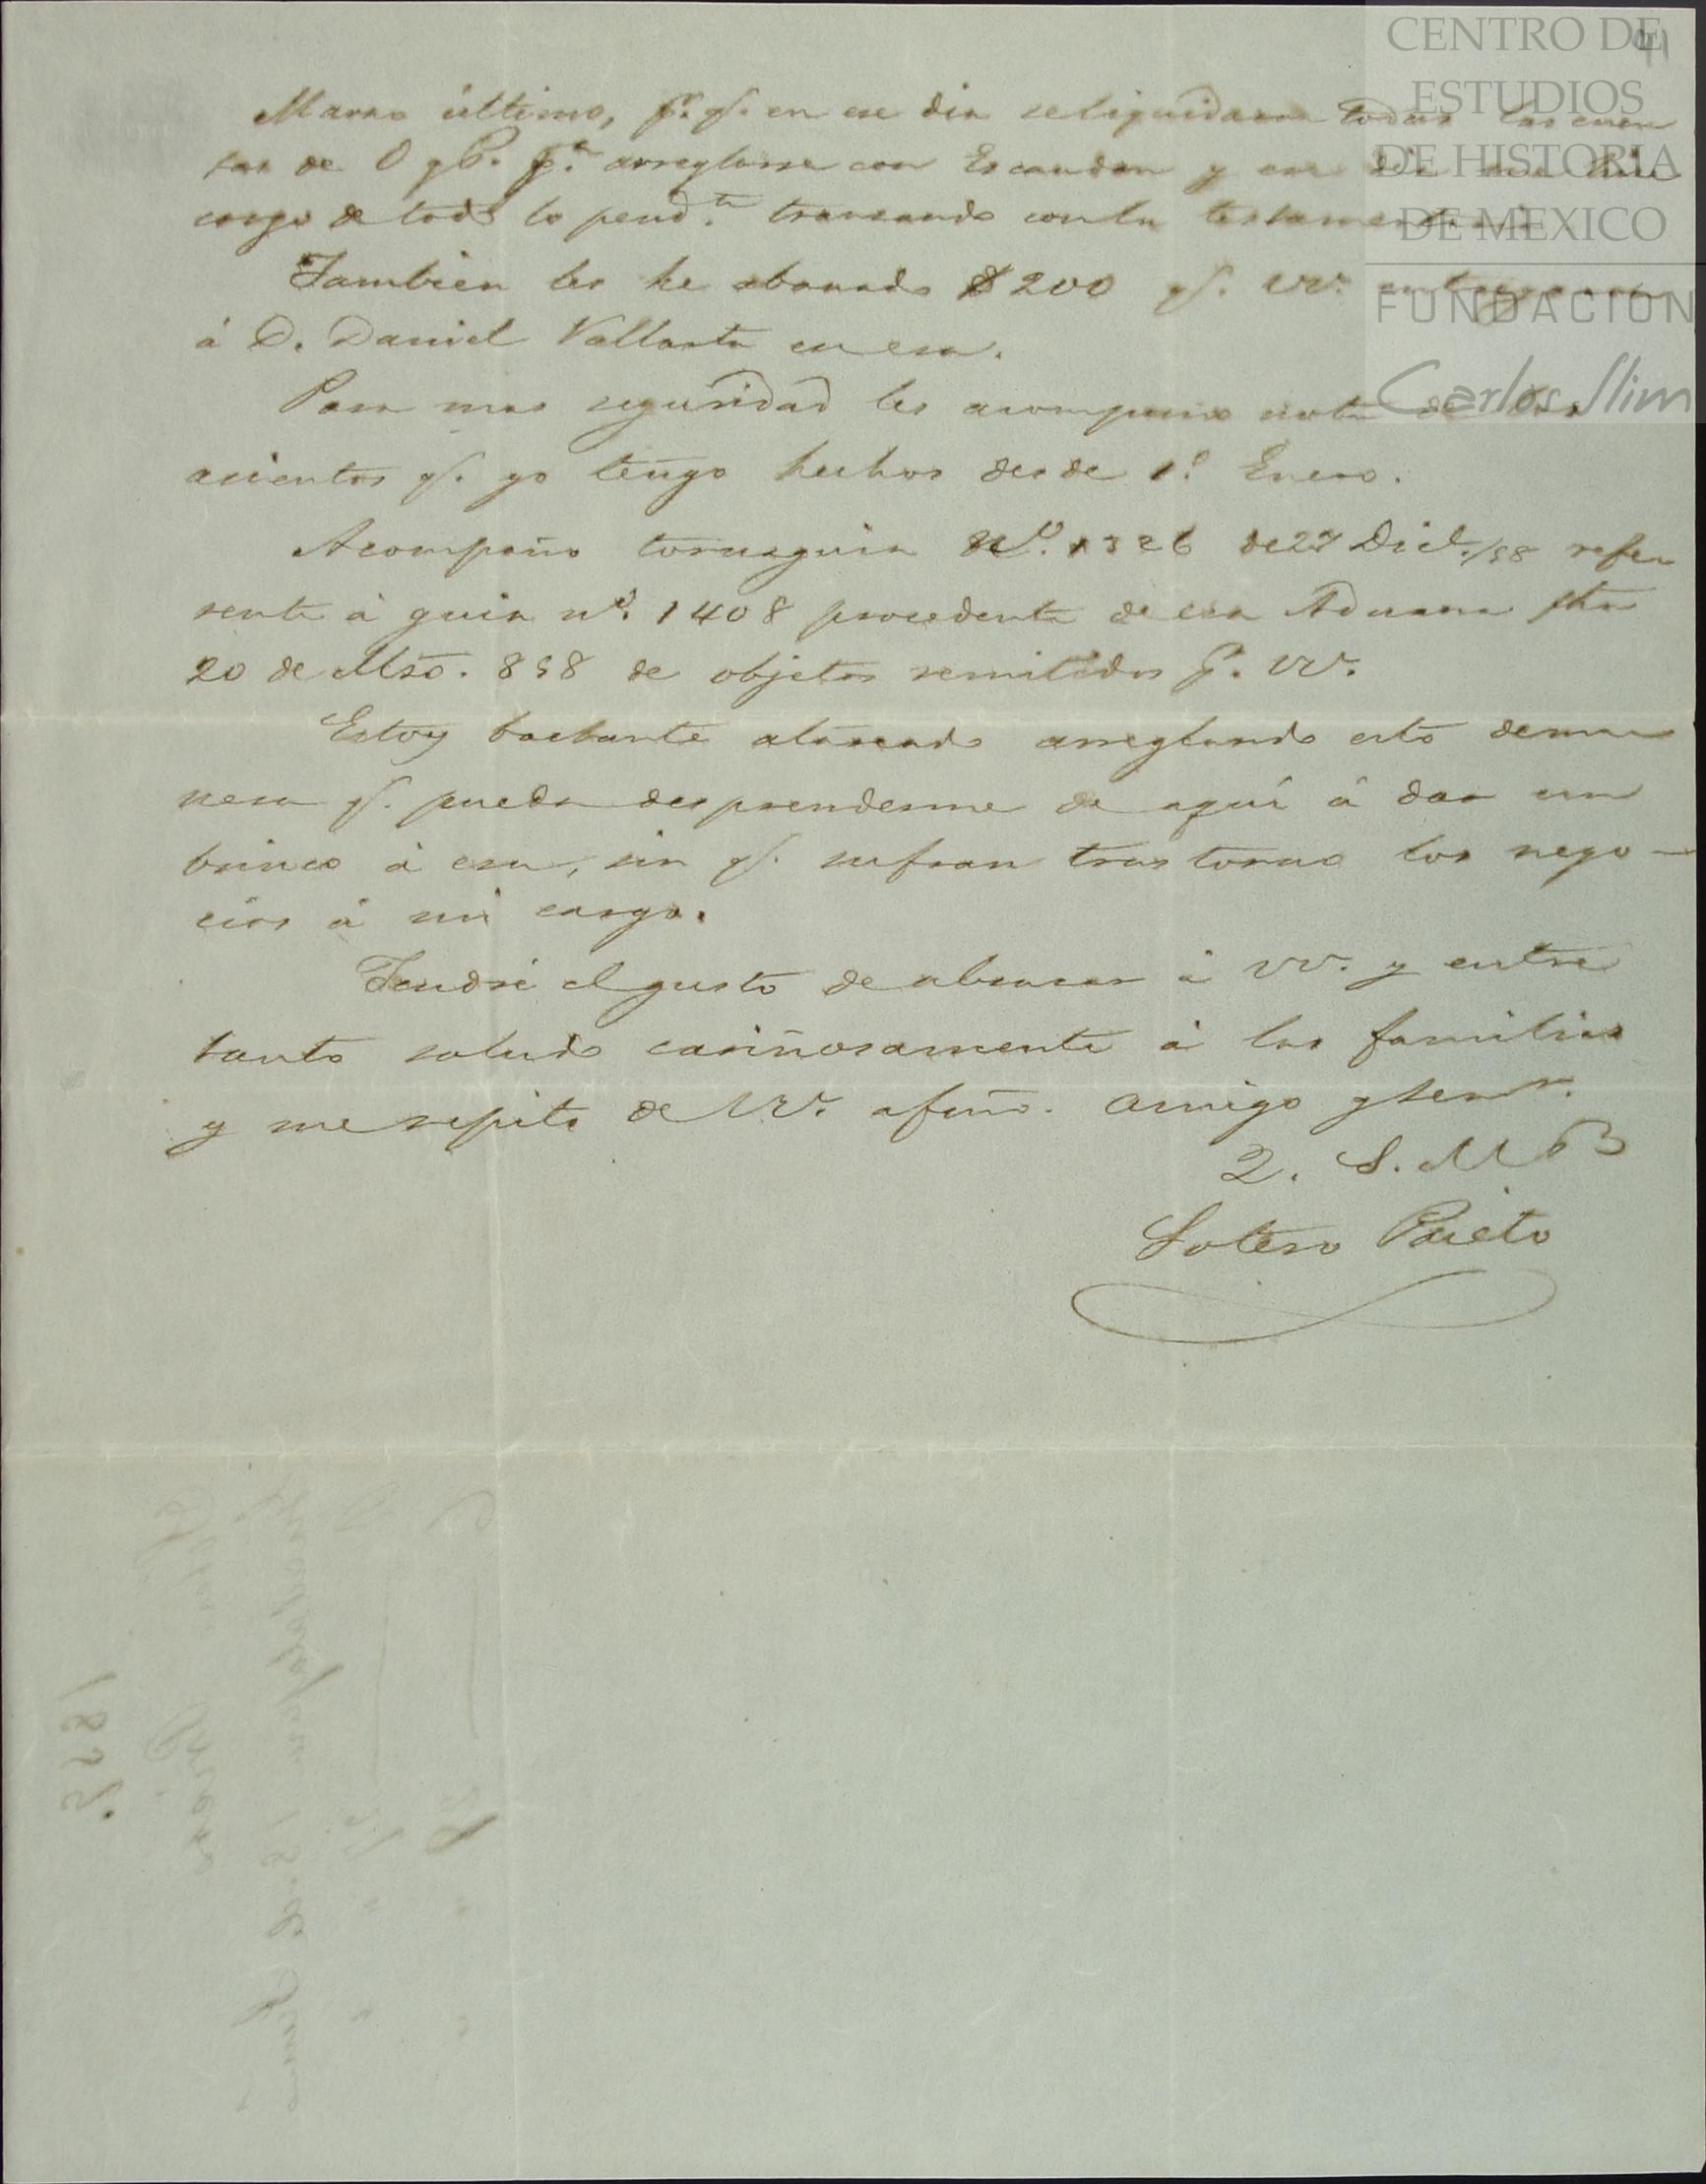 41
Marzo último, p.r q.e en ese dia se liquidaron todas las cuen
tas de O y P. p.a arreglarse con Escandon y ese dia me hice
cargo de todo lo pend.te transando con la testamentaria.
Tambien les he abonado $200 q.e VV. entregaron
á D. Daniel Vallarta en esa.
Para mas seguridad les acompaño nota de los
asientos q.e yo tengo hechos desde 1.o Enero.
Acompaño tornaguia N.o 1326 de 27 Dice./58 refe
rente á guia n.o 1408 procedente de esa Aduana fha
20 de Mzo. 858 de objetos remitidos p.r VV.
Estoy bastante atareado arreglando esto de ma
nera q.e pueda desprenderme de aquí á dar un
brinco á esa, sin q.e sufran trastorno los nego-
cios á mi cargo.
Tendré el gusto de abrazar á VV. y entre
tanto saludo cariñosamente á las familias
y me repito de VV. afmo. amigo y serv.r
Q. S. M B
Sotero Prieto
CENTRO DE
ESTUDIOS
DE HISTORIA
DE MEXICO
FUNDACIÓN
Carlos Slim